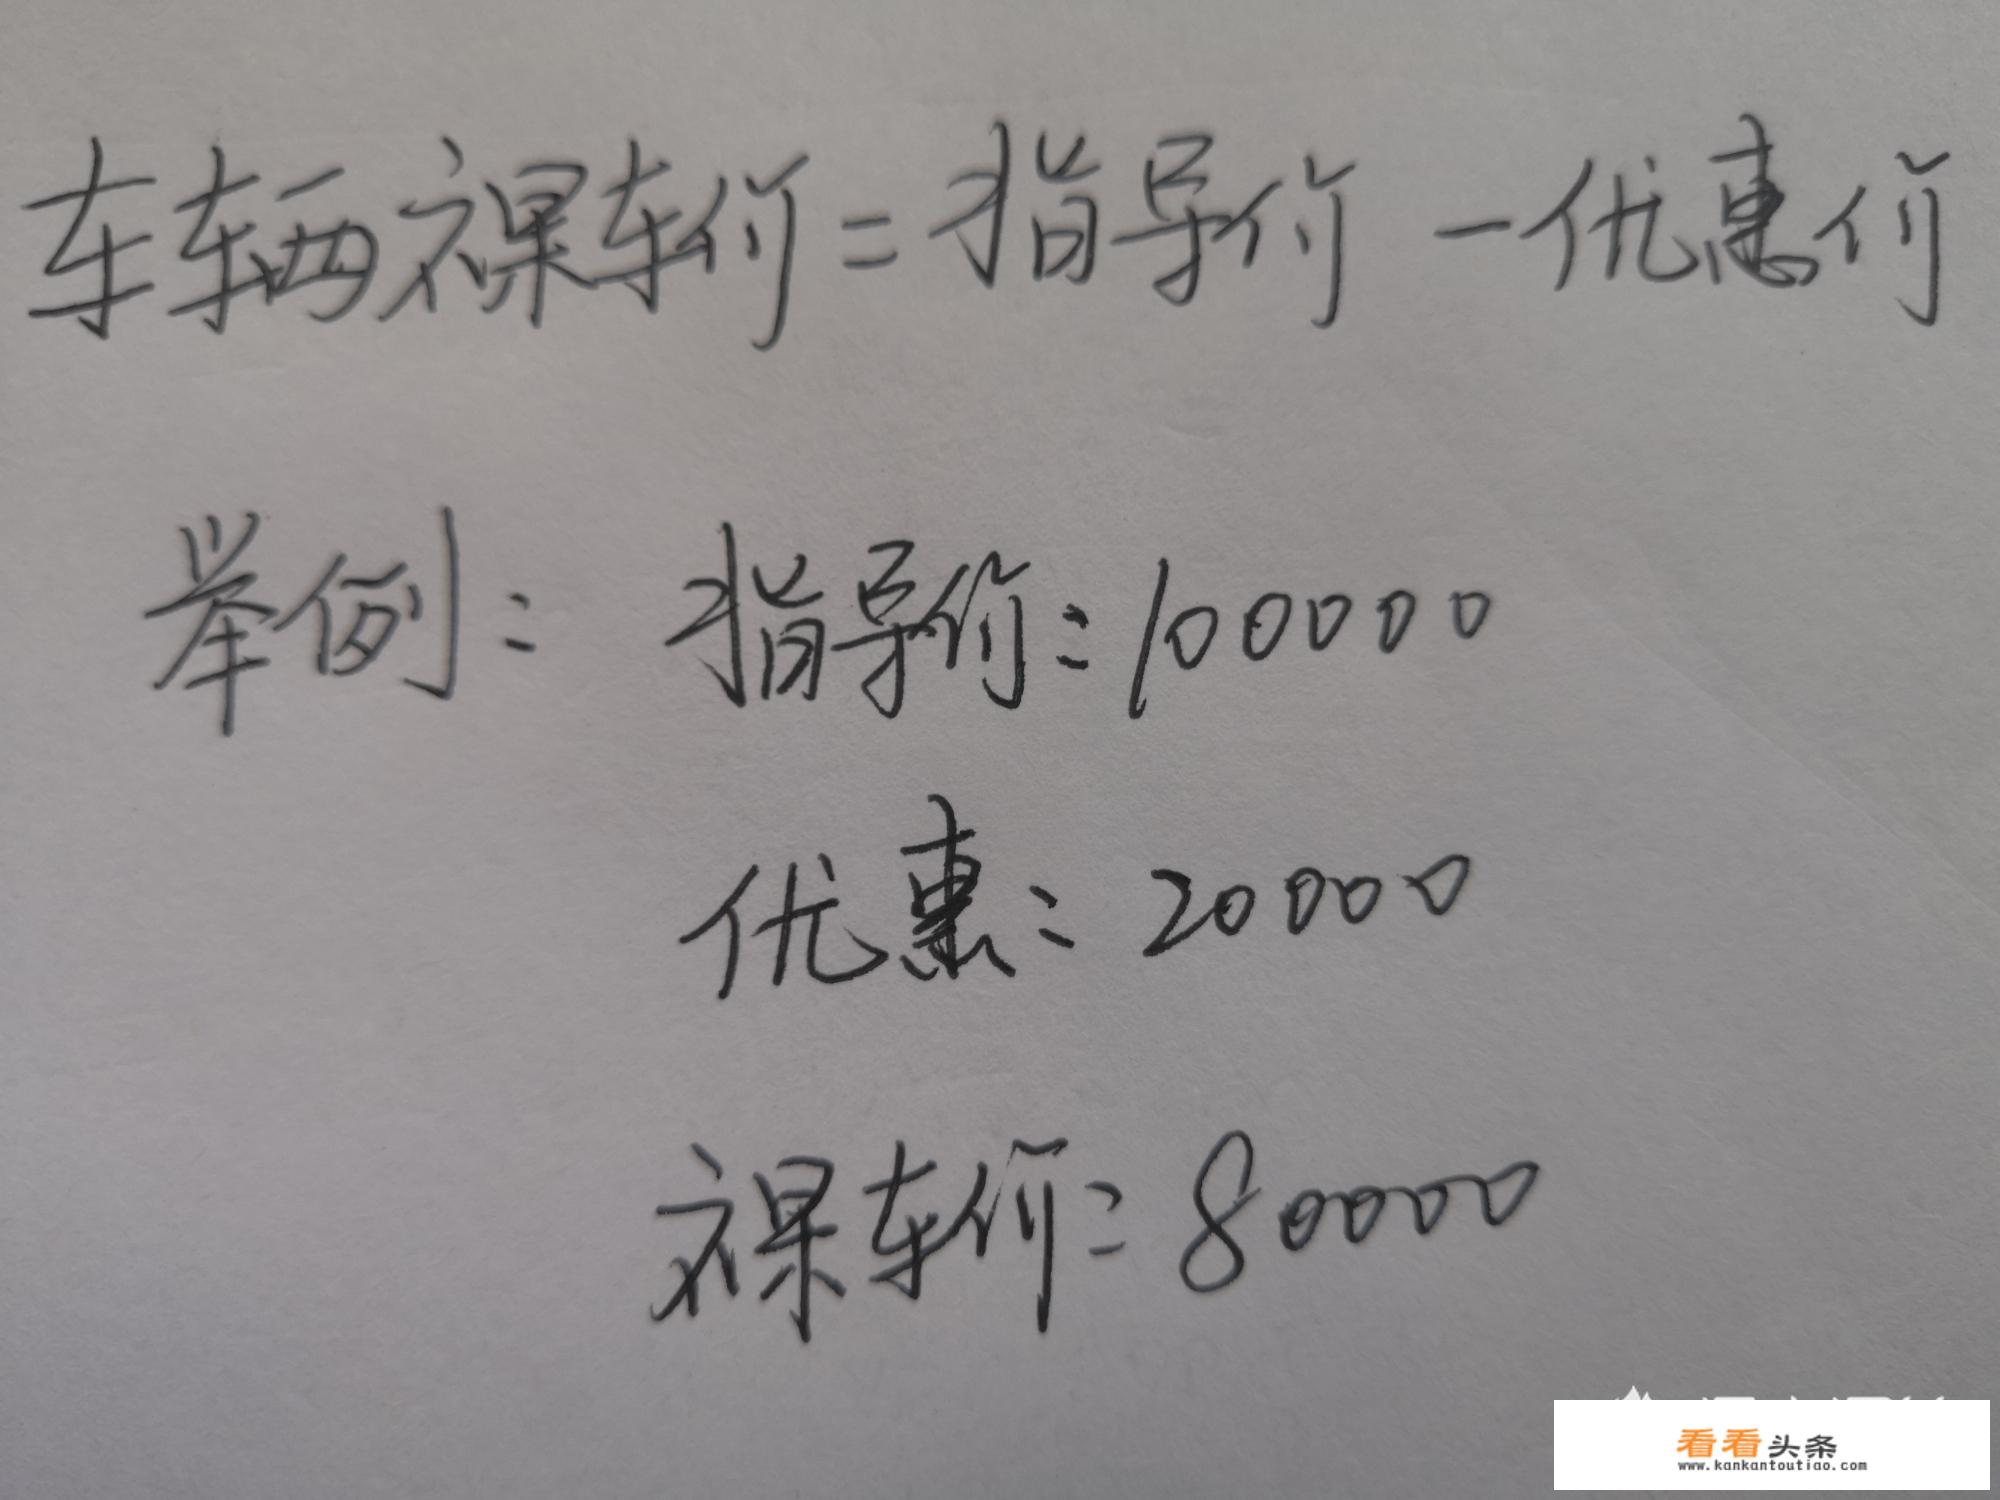 车辆裸车价=指导价-优惠价
举例: 指导价:100000
优惠:20000
裸车价:80000
看看头条
www.kankantoutiao.com